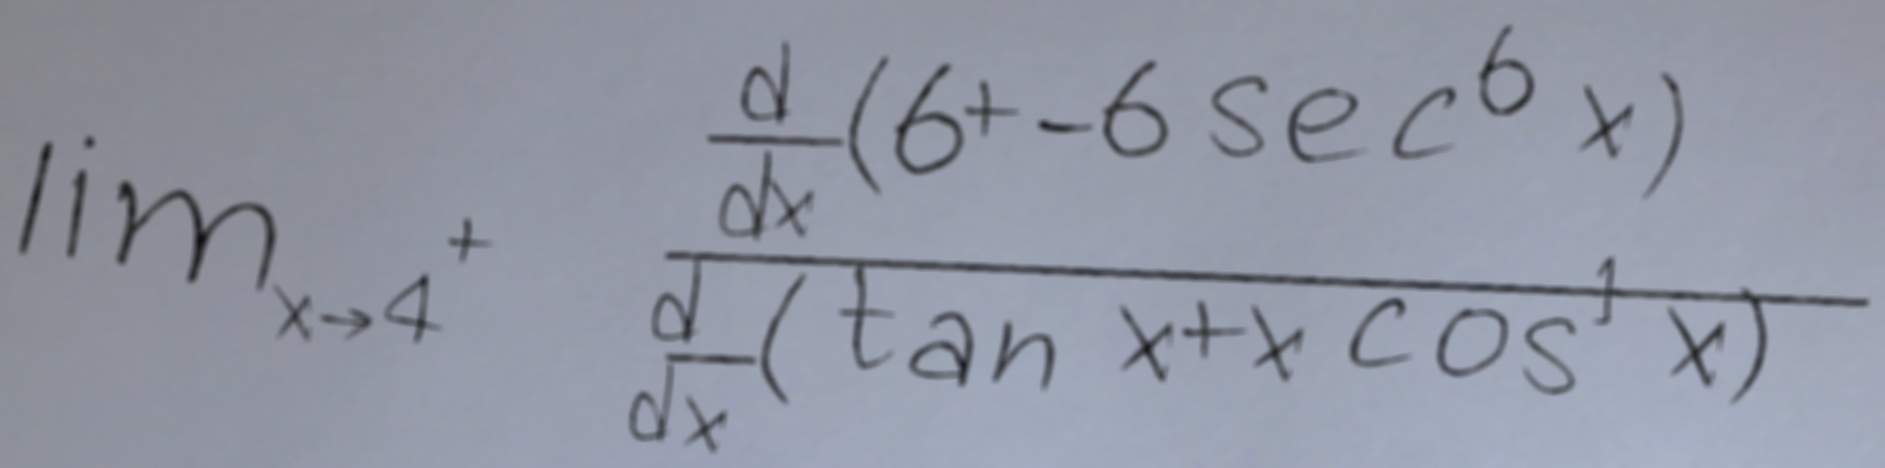 lim_{x→4^+} \frac{\frac{d}{dx}(6^+-6 sec^6 x)}{\frac{d}{dx}(tan x+x cos^1 x)}